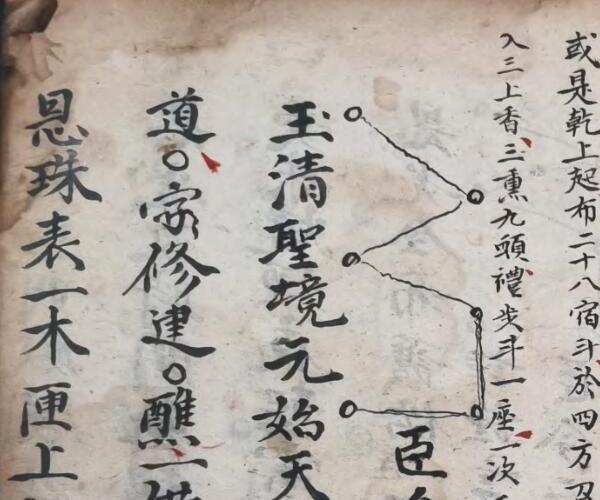 或是乾上起布二十八宿斗於四方
入三上香三熏九頭禮步斗一座一次
臣
玉清聖境元始天
道○家修建○醮一
恳珠表一木匣上